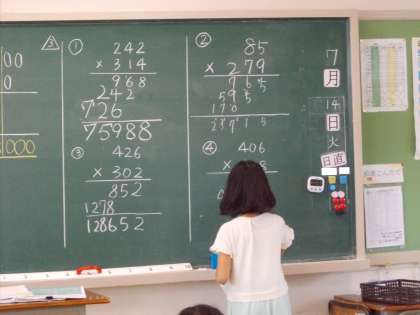 00
0
000
3
①
242
× 314
968
242
726
75988
②
85
× 279
765
595
170
23715
③
426
× 302
852
1278
128652
④
406
×
7
月
14
日
火
日直